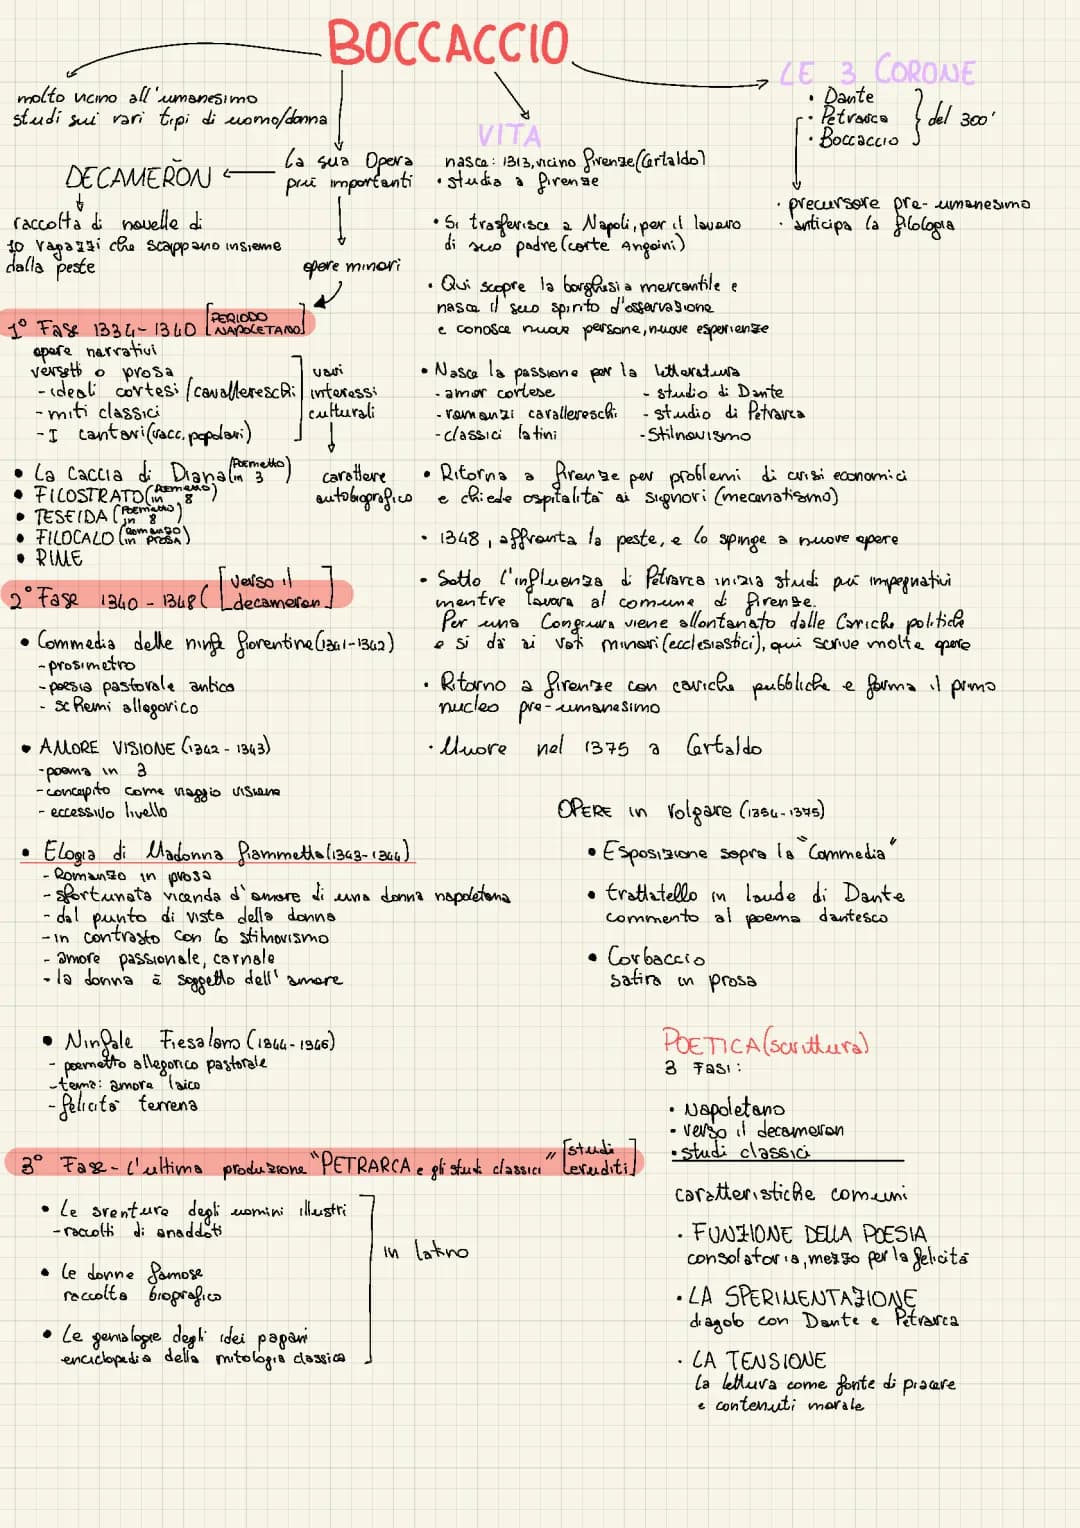 BOCCACCIO
molto vicino all'umanesimo
studi sui vari tipi di uomo/donna
LE 3 CORONE
• Dante
• Petrarca
• Boccaccio
del 300'
• precursore pre-umanesimo
• anticipa la filologia
DECAMERON
La sua Opera
più importanti
raccolta di novelle di
10 ragazzi che scappano insieme
dalla peste
opere minori
VITA
nasce: 1313, vicino firenze (Certaldo)
• studia a firenze
• Si trasferisce a Napoli, per il lavoro
di suo padre (corte Angoini)
• Qui scopre la borghesia mercantile e
nasce il suo spirito d'osservazione
e conosce nuove persone, nuove esperienze
• Nasce la passione per la letteratura
- amor cortese
- romanzi cavallereschi
- classici latini
- studio di Dante
- studio di Petrarca
- Stilnovismo
• Ritorna a firenze per problemi di crisi economici
e chiede ospitalità ai signori (mecenatismo)
• 1348, affronta la peste, e lo spinge a nuove opere
• Sotto l'influenza di Petrarca inizia studi più impegnativi
mentre lavora al comune di firenze.
Per una Congiura viene allontanato dalle Cariche politiche
e si dà ai voti minori (ecclesiastici), qui scrive molte opere
• Ritorno a firenze con cariche pubbliche e forma il primo
nucleo pre-umanesimo
• Muore nel 1375 a Certaldo
1° Fase 1334-1340 [PERIODO NAPOLETANO]
opere narrativi
versetti o prosa
- ideali cortesi/cavallereschi
- miti classici
- I cantari (racc. popolari)
vari
interessi
culturali
carattere
autobiografico
• La caccia di Diana (Poemetto in 3)
• FILOSTRATO (Poemetto in 8)
• TESEIDA (Poemetto in 8)
• FILOCALO (Romanzo in PROSA)
• RIME
2° Fase 1340-1348 ([verso il decameron]
• Commedia delle ninfe fiorentine (1341-1342)
- prosimetro
- poesia pastorale antica
- schemi allegorico
• AMORE VISIONE (1342-1343)
- poema in 3
- concepito come viaggio visione
- eccessivo livello
• Elogia di Madonna Fiammetta (1343-1344)
- Romanzo in prosa
- sfortunata vicenda d'amore di una donna napoletana
- dal punto di vista della donna
- in contrasto con lo stilnovismo
- amore passionale, carnale
- la donna è soggetto dell'amore
• Ninfale Fiesolano (1344-1346)
- poemetto allegorico pastorale
- tema: amore laico
- felicità terrena
3° Fase - L'ultima produzione "PETRARCA e gli studi classici" [studi eruditi]
• Le sventure degli uomini illustri
- raccolti di anaddoti
• Le donne famose
raccolta biografico
• Le genialogie degli idei pagani
enciclopedia della mitologia classica
in latino
OPERE in volgare (1354-1375)
• Esposizione sopra la "Commedia"
• trattatello in laude di Dante
commento al poema dantesco
• Corbaccio
satira in prosa
POETICA (scrittura)
3 FASI:
• Napoletano
• verso il decameron
• studi classici
caratteristiche comuni
• FUNZIONE DELLA POESIA
consolatoria, mezzo per la felicità
• LA SPERIMENTAZIONE
dialogo con Dante e Petrarca
• LA TENSIONE
La lettura come fonte di piacere
e contenuti morale